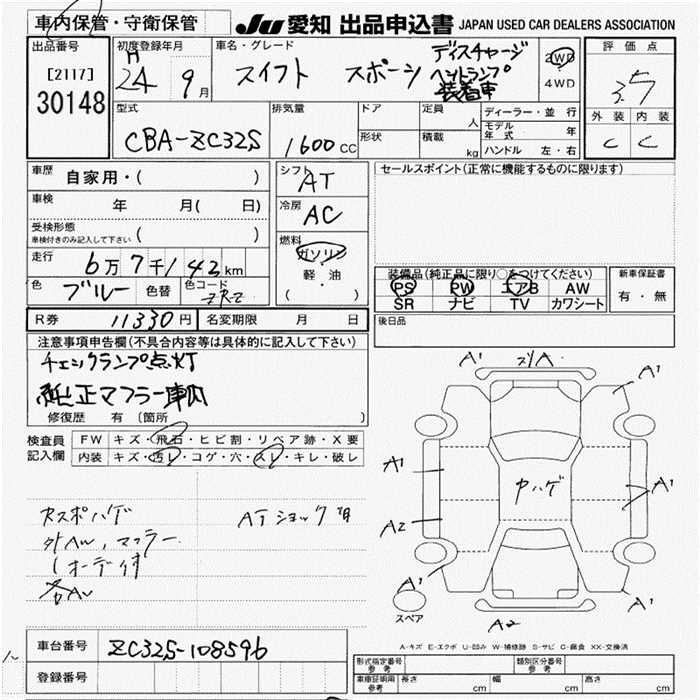 車内保管・守衛保管
JU 愛知 出品申込書 JAPAN USED CAR DEALERS ASSOCIATION
出品番号
[2117]
30148
初度登録年月
H
24 9月
車名・グレード
スイフト スポーツ
ディスチャージ
ヘッドランプ
装着車
2WD
4WD
評価点
3.5
外装 内装
C C
型式
CBA-ZC32S
排気量
1600cc
ドア
形状
定員
人
積載
kg
ディーラー・並行
モデル年式 年
ハンドル 左・右
車歴
自家用・( )
車検
年 月( 日)
受検形態
車検付きのみ記入して下さい ( )
走行
6万7千142km
色
ブルー
色替
色コード
シフト
AT
冷房
AC
燃料
ガソリン
軽・油
( )
セールスポイント(正常に機能するものに限ります)
装備品(純正品に限り○をつけてください)
PS PW エアB AW
SR ナビ TV カワシート
新車保証書
有・無
R券 11330円
名変期限 月 日
後日品
注意事項申告欄(不具合内容等は具体的に記入して下さい)
チェックランプ点灯
純正マフラー車内
修復歴 有 〔箇所 〕
検査員
記入欄
FW キズ・飛石・ヒビ割・リペア跡・X要
内装 キズ・汚レ・コゲ・穴・スレ・キレ・破レ
外AW、マフラー
オーデ付
ATショック有
A1 A1
A1 A1
A2
A1 A1
A2
スペア
A-キズ E-エクボ U-凹み W-補修跡 S-サビ C-腐食 XX-交換済
車台番号
ZC32S-108596
登録番号
形式指定番号
参考
類別区分番号
参考
車庫証明用
参考
長さ cm
幅 cm
高さ cm